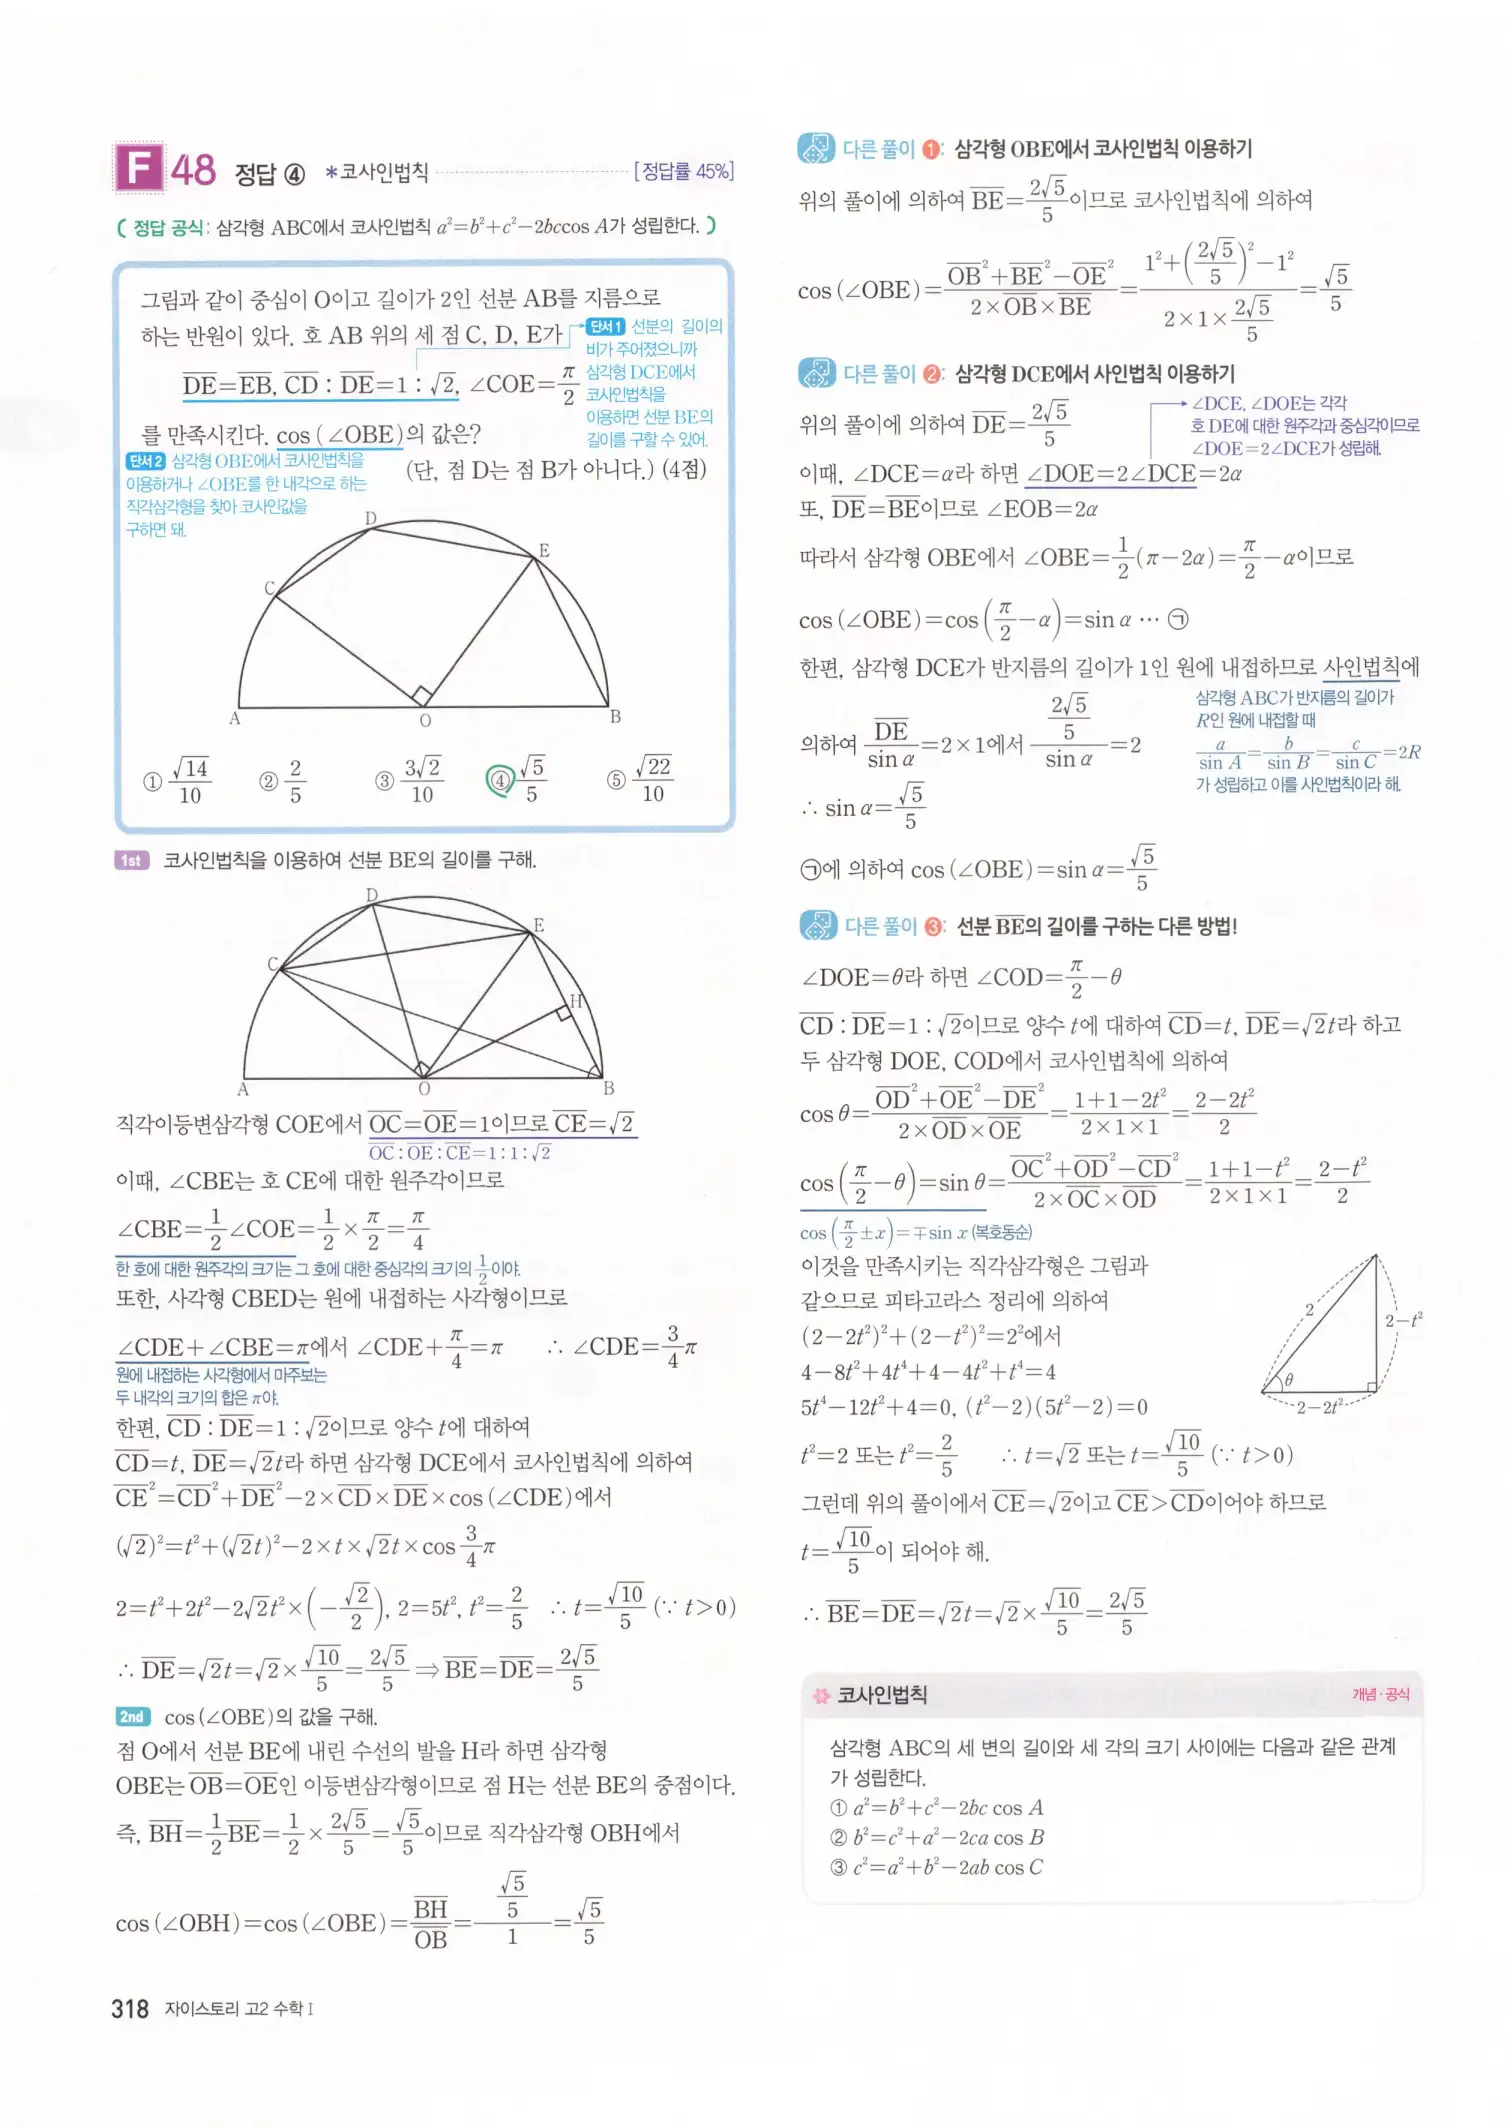 F 48 정답 ④ *코사인법칙 [정답률 45%]
( 정답 공식: 삼각형 ABC에서 코사인법칙 a²=b²+c²-2bccos A가 성립한다. )
그림과 같이 중심이 O이고 길이가 2인 선분 AB를 지름으로
하는 반원이 있다. 호 AB 위의 세 점 C, D, E가
단서1 선분의 길이의
비가 주어졌으니까
삼각형 DCE에서
코사인법칙을
이용하면 선분 BE의
길이를 구할 수 있어.
DE=EB, CD : DE=1 : √2, ∠COE=π/2
를 만족시킨다. cos (∠OBE)의 값은?
(단, 점 D는 점 B가 아니다.) (4점)
단서2 삼각형 OBE에서 코사인법칙을
이용하거나 ∠OBE를 한 내각으로 하는
직각삼각형을 찾아 코사인값을
구하면 돼.
D
E
C
A
O
B
① √14/10 ② 2/5 ③ 3√2/10 ④ √5/5 ⑤ √22/10
1st 코사인법칙을 이용하여 선분 BE의 길이를 구해.
D
E
C
H
A
O
B
직각이등변삼각형 COE에서 OC=OE=1이므로 CE=√2
OC : OE : CE=1 : 1 : √2
이때, ∠CBE는 호 CE에 대한 원주각이므로
∠CBE=1/2∠COE=1/2×π/2=π/4
한 호에 대한 원주각의 크기는 그 호에 대한 중심각의 크기의 1/2이야.
또한, 사각형 CBED는 원에 내접하는 사각형이므로
∠CDE+∠CBE=π에서 ∠CDE+π/4=π ∴ ∠CDE=3/4π
원에 내접하는 사각형에서 마주보는
두 내각의 크기의 합은 π야.
한편, CD : DE=1 : √2이므로 양수 t에 대하여
CD=t, DE=√2t라 하면 삼각형 DCE에서 코사인법칙에 의하여
CE²=CD²+DE²-2×CD×DE×cos (∠CDE)에서
(√2)²=t²+(√2t)²-2×t×√2t×cos 3/4π
2=t²+2t²-2√2t²×(-√2/2), 2=5t², t²=2/5 ∴ t=√10/5 (∵ t>0)
∴ DE=√2t=√2×√10/5=2√5/5 ⇒ BE=DE=2√5/5
2nd cos (∠OBE)의 값을 구해.
점 O에서 선분 BE에 내린 수선의 발을 H라 하면 삼각형
OBE는 OB=OE인 이등변삼각형이므로 점 H는 선분 BE의 중점이다.
즉, BH=1/2BE=1/2×2√5/5=√5/5이므로 직각삼각형 OBH에서
cos (∠OBH)=cos (∠OBE)=BH/OB=(√5/5)/1=√5/5
318 자이스토리 고2 수학 I
다른 풀이 ❶: 삼각형 OBE에서 코사인법칙 이용하기
위의 풀이에 의하여 BE=2√5/5이므로 코사인법칙에 의하여
cos (∠OBE)=(OB²+BE²-OE²)/(2×OB×BE)=(1²+(2√5/5)²-1²)/(2×1×2√5/5)=√5/5
다른 풀이 ❷: 삼각형 DCE에서 사인법칙 이용하기
위의 풀이에 의하여 DE=2√5/5
∠DCE, ∠DOE는 각각
호 DE에 대한 원주각과 중심각이므로
∠DOE=2∠DCE가 성립해.
이때, ∠DCE=α라 하면 ∠DOE=2∠DCE=2α
또, DE=BE이므로 ∠EOB=2α
따라서 삼각형 OBE에서 ∠OBE=1/2(π-2α)=π/2-α이므로
cos (∠OBE)=cos (π/2-α)=sin α … ㉠
한편, 삼각형 DCE가 반지름의 길이가 1인 원에 내접하므로 사인법칙에
의하여 DE/sin α=2×1에서 (2√5/5)/sin α=2
삼각형 ABC가 반지름의 길이가
R인 원에 내접할 때
a/sin A=b/sin B=c/sin C=2R
가 성립하고 이를 사인법칙이라 해.
∴ sin α=√5/5
㉠에 의하여 cos (∠OBE)=sin α=√5/5
다른 풀이 ❸: 선분 BE의 길이를 구하는 다른 방법!
∠DOE=θ라 하면 ∠COD=π/2-θ
CD : DE=1 : √2이므로 양수 t에 대하여 CD=t, DE=√2t라 하고
두 삼각형 DOE, COD에서 코사인법칙에 의하여
cos θ=(OD²+OE²-DE²)/(2×OD×OE)=(1+1-2t²)/(2×1×1)=(2-2t²)/2
cos (π/2-θ)=sin θ=(OC²+OD²-CD²)/(2×OC×OD)=(1+1-t²)/(2×1×1)=(2-t²)/2
cos (π/2±x)=∓sin x (복호동순)
이것을 만족시키는 직각삼각형은 그림과
같으므로 피타고라스 정리에 의하여
(2-2t²)²+(2-t²)²=2²에서
4-8t²+4t⁴+4-4t²+t⁴=4
5t⁴-12t²+4=0, (t²-2)(5t²-2)=0
2
2-t²
θ
2-2t²
t²=2 또는 t²=2/5 ∴ t=√2 또는 t=√10/5 (∵ t>0)
그런데 위의 풀이에서 CE=√2이고 CE>CD이어야 하므로
t=√10/5이 되어야 해.
∴ BE=DE=√2t=√2×√10/5=2√5/5
코사인법칙 개념·공식
삼각형 ABC의 세 변의 길이와 세 각의 크기 사이에는 다음과 같은 관계
가 성립한다.
① a²=b²+c²-2bc cos A
② b²=c²+a²-2ca cos B
③ c²=a²+b²-2ab cos C